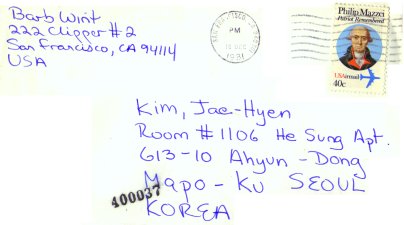 Barb Wint
222 Clipper #2
San Francisco, CA 94114
USA
PM
1981
Philip Mazzei
Patriot Remembered
USAirmail
40c
Kim, Jae-Hyen
Room #1106 He Sung Apt.
613-10 Ahyun-Dong
Mapo-Ku SEOUL
400037
KOREA